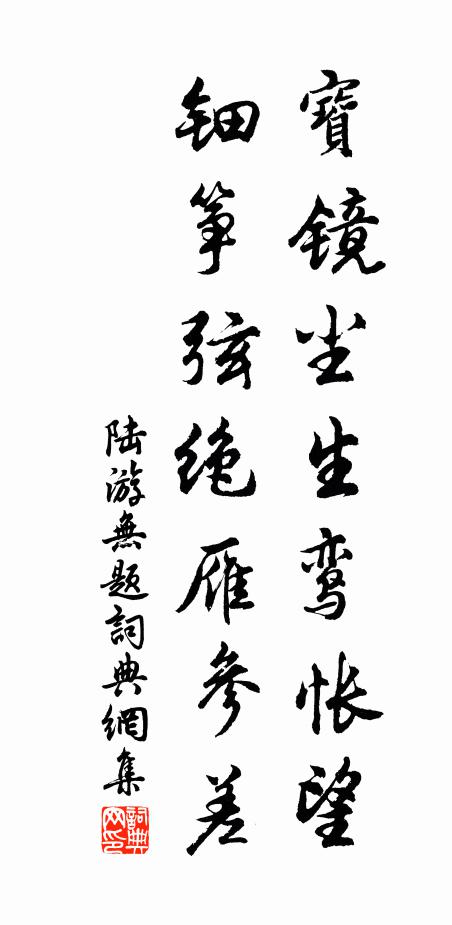 寶镜尘生鸾怅望
钿筝弦绝雁参差
陆游無题詞典網集
詞典网印